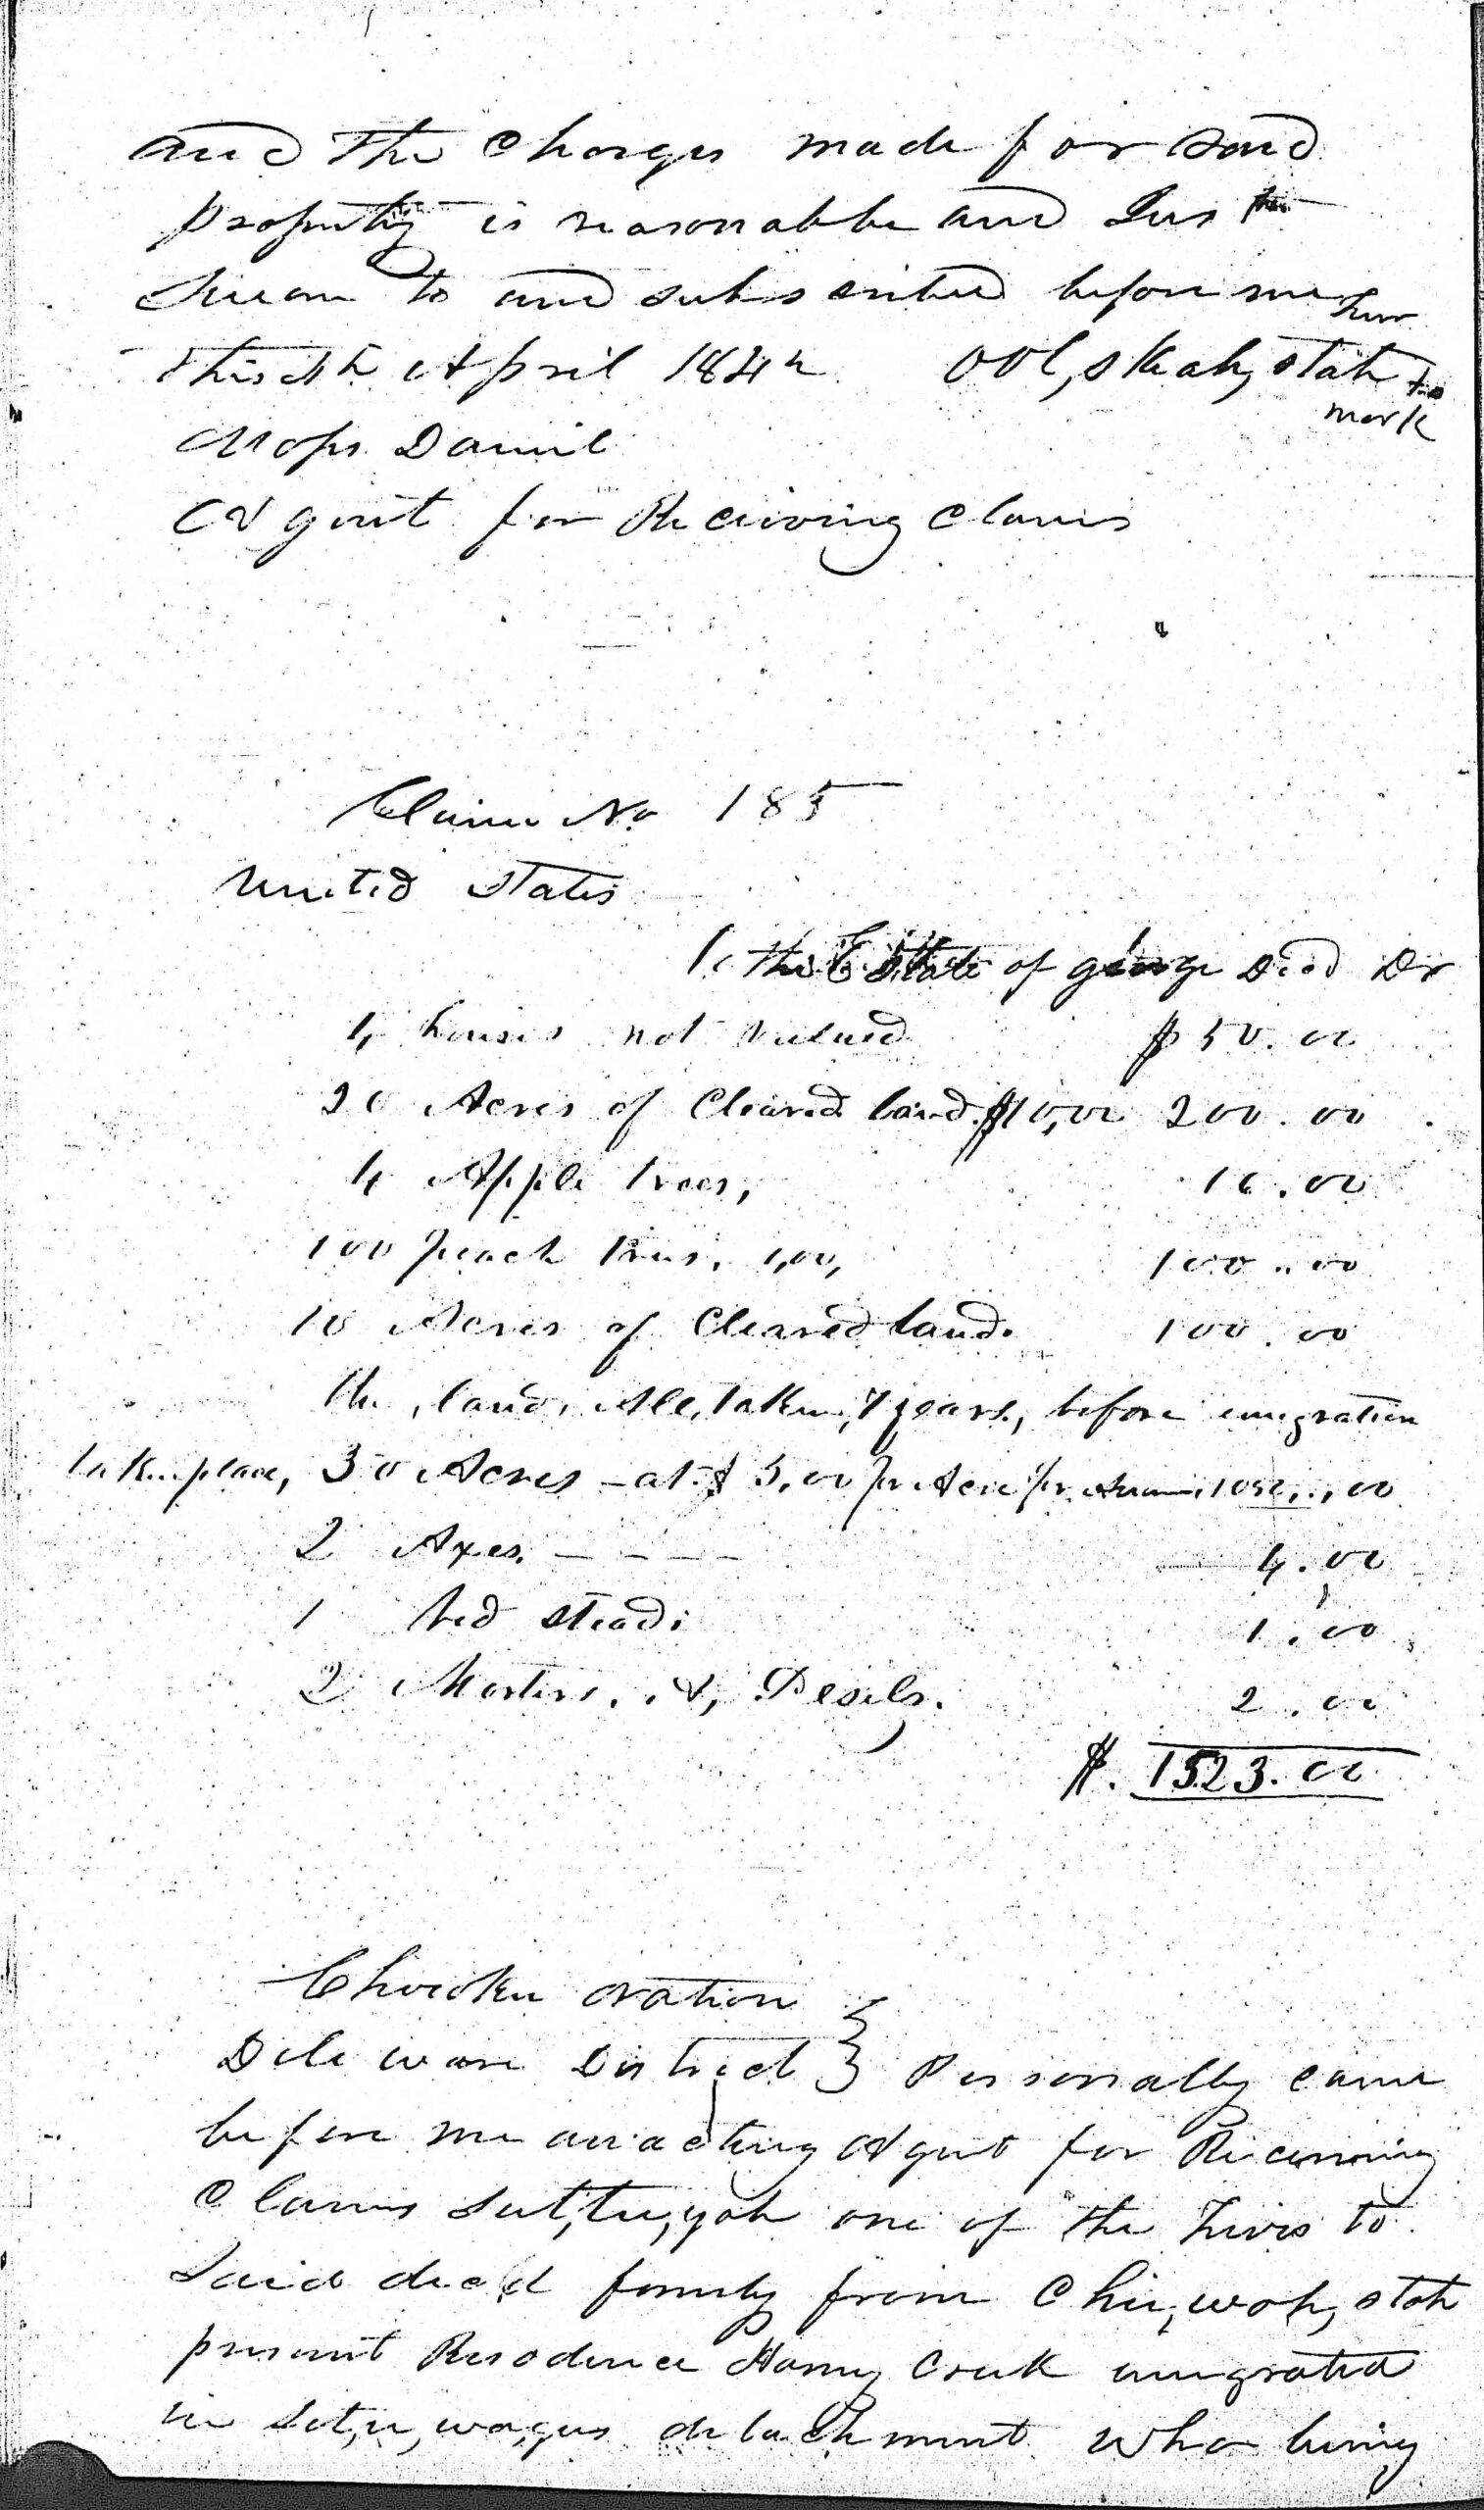 and the charges made for said
property is reasonable and Just
Sworn to and subscribed before me her
this 4th April 1842 Ool,skah,stah +
mark
Moses Daniel
Agent for Receiving claims
Claim No 185
United States
the Estate of george Decd Dr
1, houses not valued $50.00
20 Acres of Cleared land $10,00 200.00
4 Apple trees, 16.00
100 peach trees, 1,00, 100.00
10 Acres of Cleared land. 100.00
the, land, All, taken, 7 years, before emigration
taken place, 30 Acres - at $5,00 pr Acre pr Anum, 1050,.,00
2 Axes. - - - - 4.00
1 bed stead; 1.00
2 Morters, &, Pesels. 2.00
$. 1523.00
Cherokee Nation
Deleware District } Personally came
before me an acting Agent for Receiving
Claims Sut,tu,yah one of the heirs to
Said decd family from Chu,woh,stah
present Resodence Honey Creek emigrated
in detachment who being